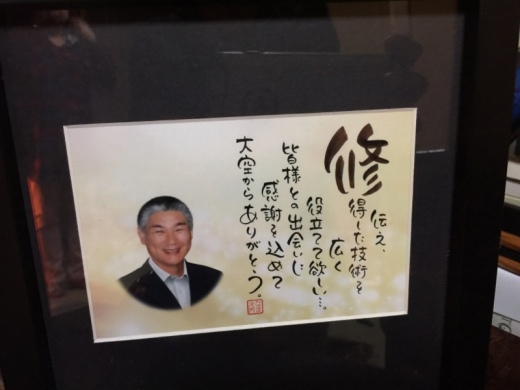 修得した技術を
伝え、
広く
役立てて欲しい…。
皆様との出会いに
感謝を込めて
大空からありがとう。